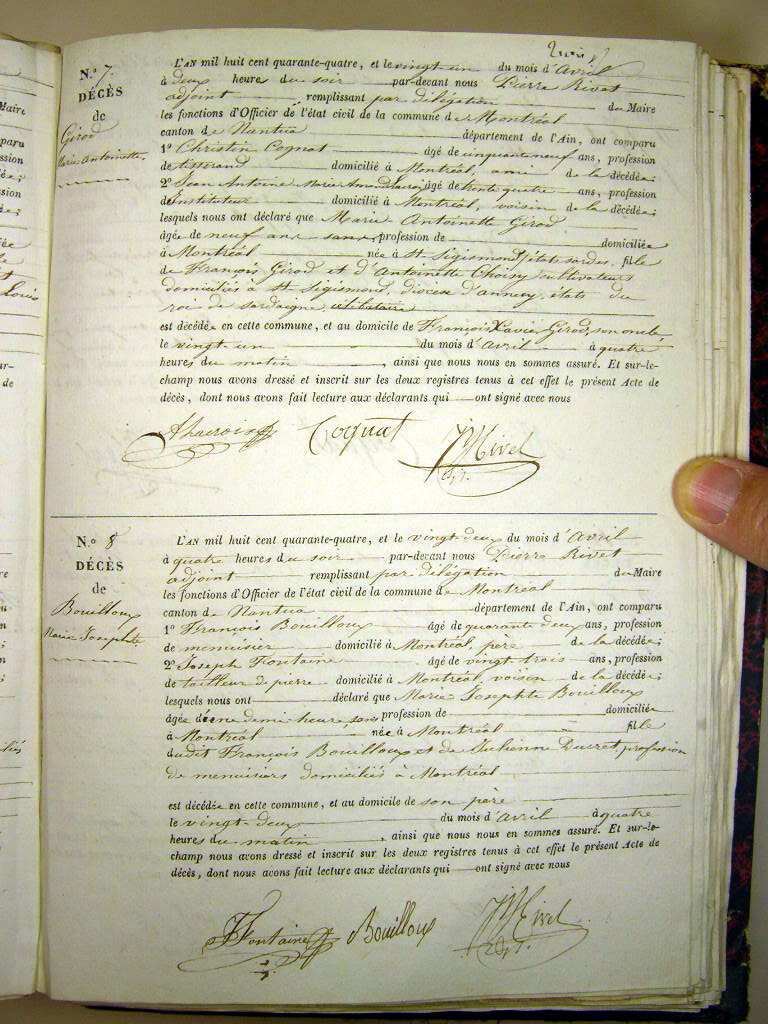 N.º 7.
DÉCÈS
de
Girod
Marie Antoinette
L'AN mil huit cent quarante-quatre, et le vingt un du mois d'avril
à deux heure du soir par-devant nous Pierre Rivet
adjoint remplissant par délégation du Maire
les fonctions d'Officier de l'état civil de la commune de Montréal
canton de Nantua département de l'Ain, ont comparu
1º Christin Cognat âgé de cinquante neuf ans, profession
de tisserand domicilié à Montréal, ami de la décédée;
2º Jean Antoine Marie âgé de trente quatre ans, profession
d'instituteur domicilié à Montréal, voisin de la décédée;
lesquels nous ont déclaré que Marie Antoinette Girod
âgée de neuf ans sans profession de domiciliée
à Montréal née à St Sigismond, états sardes, fille
de François Girod et d'Antoinette Choisy cultivateurs
domiciliés à St Sigismond, diocèse d'annecy, états du
roi de sardaigne, célibataire
est décédée en cette commune, et au domicile de François Xavier Girod, son oncle
le vingt-un du mois d'avril à quatre
heures du matin, ainsi que nous nous en sommes assuré. Et sur-le-
champ nous avons dressé et inscrit sur les deux registres tenus à cet effet le présent Acte de
décès, dont nous avons fait lecture aux déclarants qui ont signé avec nous
ALacroix Cognat Rivet
adjt.
N.º 8
DÉCÈS
de
Bouilloux
Marie Josephte
L'AN mil huit cent quarante-quatre, et le vingt-deux du mois d'avril
à quatre heures du soir par-devant nous Pierre Rivet
adjoint remplissant par délégation du Maire
les fonctions d'Officier de l'état civil de la commune de Montréal
canton de Nantua département de l'Ain, ont comparu
1º François Bouilloux âgé de quarante deux ans, profession
de menuisier domicilié à Montréal, père de la décédée;
2º Joseph Fontaine âgé de vingt trois ans, profession
de tailleur de pierre domicilié à Montréal, voisin de la décédée;
lesquels nous ont déclaré que Marie Josephte Bouilloux
âgée d'une demi heure, sans profession de domiciliée
à Montréal née à Montréal fille
dudit François Bouilloux et de Julienne Ducret, profession
de menuisiers domiciliés à Montréal
est décédée en cette commune, et au domicile de son père
le vingt-deux du mois d'avril à quatre
heures du matin, ainsi que nous nous en sommes assuré. Et sur-le-
champ nous avons dressé et inscrit sur les deux registres tenus à cet effet le présent Acte de
décès, dont nous avons fait lecture aux déclarants qui ont signé avec nous
JFontaine Bouilloux Rivet
adjt.